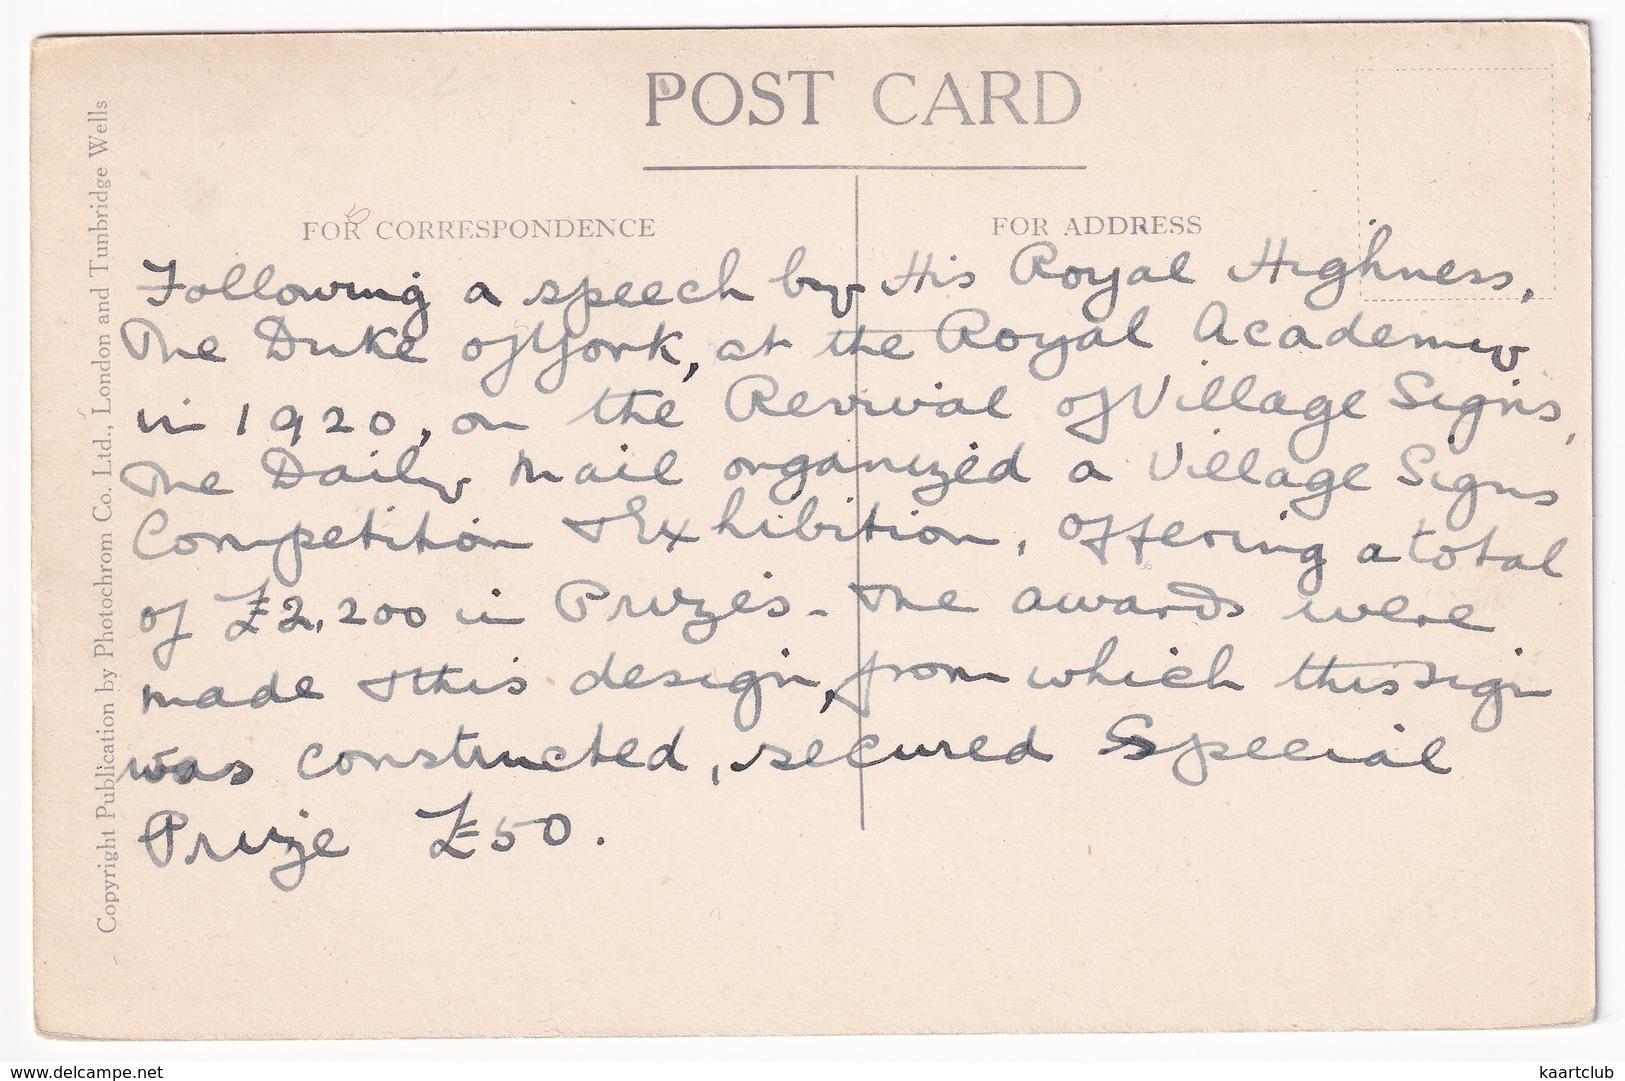 POST CARD
FOR CORRESPONDENCE
FOR ADDRESS
Following a speech by His Royal Highness,
The Duke of York, at the Royal Academy
in 1920, on the Revival of Village Signs,
The Daily Mail organized a Village Signs
Competition & Exhibition, offering a total
of £2,200 in Prizes - The awards were
made & this design, from which this sign
was constructed, secured Special
Prize £50.
Copyright Publication by Photochrom Co. Ltd., London and Tunbridge Wells
www.delcampe.net
kaartclub